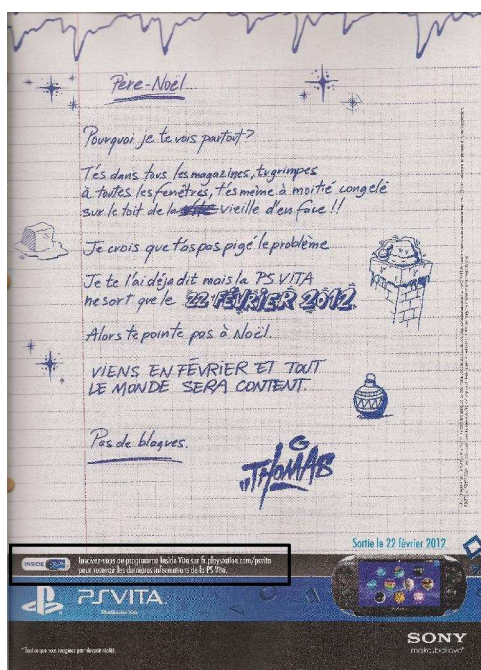 Père-Noël...
Pourquoi je te vois partout?
T'es dans tous les magazines, tu grimpes
à toutes les fenêtres, t'es même à moitié congelé
sur le toit de la vieille d'en face !!
Je crois que t'as pas pigé le problème
Je te l'ai déjà dit mais la PS.VITA
ne sort que le 22 FÉVRIER 2012
Alors te pointe pas à Noël.
VIENS EN FÉVRIER ET TOUT
LE MONDE SERA CONTENT.
Pas de blagues.
THOMAS
Sortie le 22 février 2012
INSIDE
Inscrivez-vous au programme Inside Vita sur fr.playstation.com/psvita
pour recevoir les dernières informations de la PS Vita.
PSVITA
PlayStation Vita
SONY
make.believe*
*Tout ce que vous imaginez peut devenir réalité.